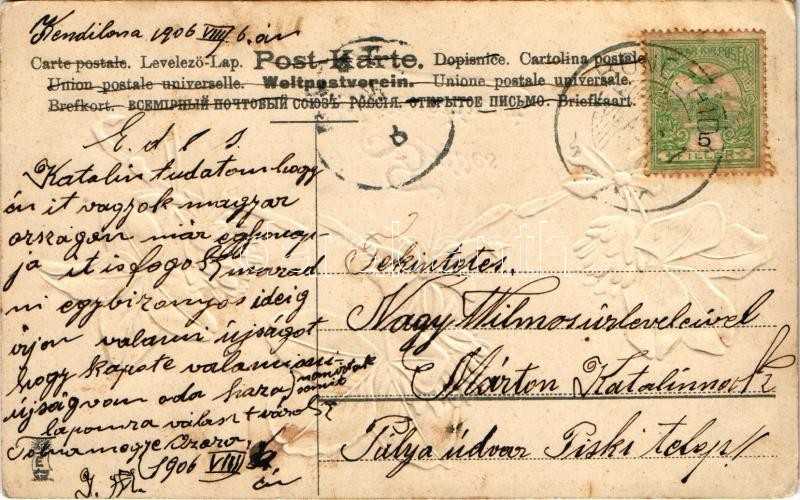 Kendilona 1906 VIII/6.án
Carte postale. Levelező-Lap. Post-Karte. Dopisnice. Cartolina postale
Union postale universelle. Weltpostverein. Unione postale universale.
Brefkort. ВСЕМІРНЫЙ ПОЧТОВЫЙ СОЮЗЪ РОССІЯ. ОТКРЫТОЕ ПИСЬМО. Briefkaart.
MAGYAR KIR. POSTA
5
FILLÉR
6
Edes
Katalin tudatom hogy
én it vagyok magyar
országon már eghonap-
ja it is fogok marad
ni egy bizonyos ideig
irjon valami újságot
hogy kapote valami
újság van oda haza
lapomra választ várok
Tolnamegye Ozora
1906 VIII
án
Tekintetes
Nagy Vilmos úrleveleivel
Márton Katalinnack
Pálya údvar Piski telep//